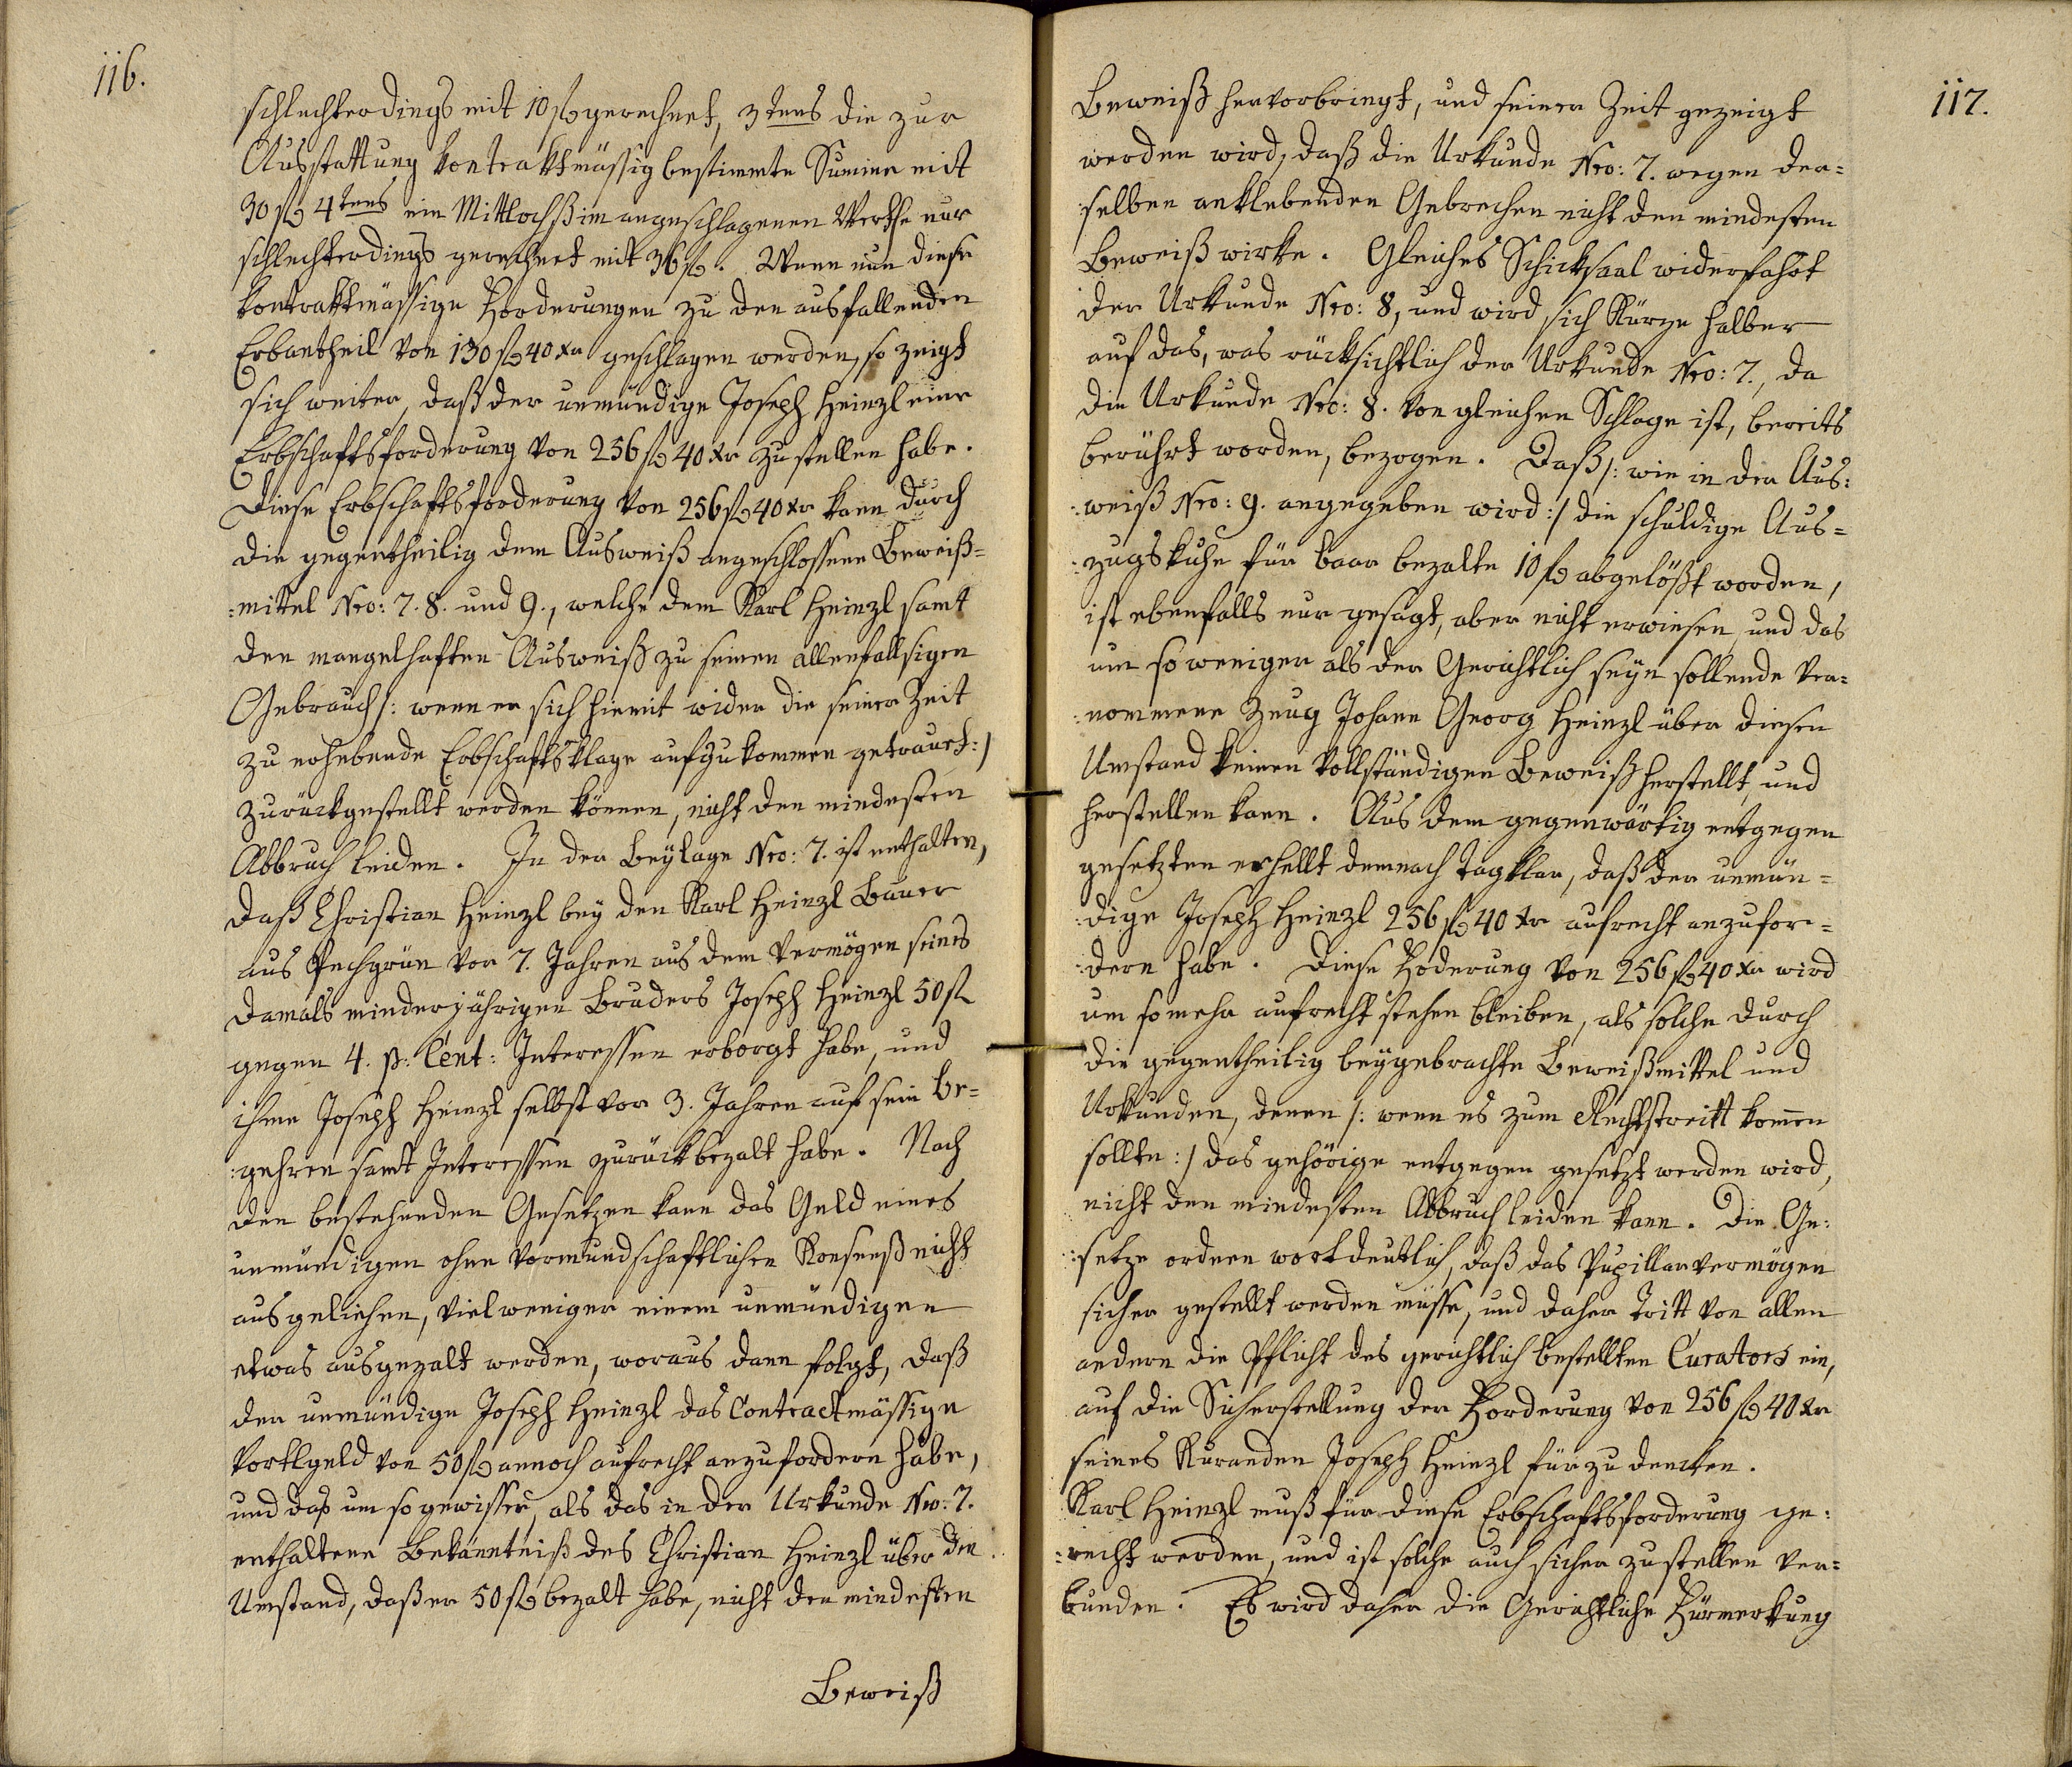 116.
schlechterdings mit 10 fl gerechnet, 3tens die zur
Ausstattung kontraktmässig bestimmte Summe mit
30 fl 4tens ein Mittlochß im angeschlagenen Werthe nur
schlechterdings gerechnet mit 36 fl. Wenn nun diese
kontraktmässige Forderungen zu den ausfallenden
Erbantheil von 130 fl 40 xr geschlagen werden, so zeigt
sich weiter, daß der unmündige Joseph Heinzl eine
Erbschaftsforderung von 256 fl 40 xr zu stellen habe.
Diese Erbschaftsforderung von 256 fl 40 xr kann durch
die gegentheilig dem Ausweiß angeschlossene Beweiß=
:mittel Nro: 7. 8. und 9., welche dem Karl Heinzl samt
den mangelhaften Ausweiß zu seinen allenfallsigen
Gebrauch /: wenn er sich hiemit wider die seiner Zeit
zu erhebende Erbschaftsklage aufzukommen getrauet :/
zurückgestellt werden können, nicht den mindesten
Abbruch leiden. In der Beylage Nro: 7. ist enthalten,
daß Christian Heinzl bey den Karl Heinzl Bauer
aus Pechgrün vor 7. Jahren aus dem Vermögen seines
damals minderjährigen Bruders Joseph Heinzl 50 fl
gegen 4. p: Cent: Interessen erborgt habe, und
ihme Joseph Heinzl selbst vor 3. Jahren auf sein Be=
:gehren samt Interessen zurückbezalt habe. Nach
den bestehenden Gesetzen kann das Geld eines
unmündigen ohne vormundschaftlichen Konsenß nicht
ausgeliehen, vielweniger einem unmündigen
etwas ausgezalt werden, woraus dann folgt, daß
der unmündige Joseph Heinzl das Contractmässige
Vortlgeld von 50 fl annoch aufrecht anzufordern habe,
und das um so gewisser, als das in der Urkunde Nro: 7.
enthaltene Bekanntniß des Christian Heinzl über den
Umstand, daß er 50 fl bezalt habe, nicht den mindesten
Beweiß
117.
Beweiß hervorbringt, und seiner Zeit gezeigt
werden wird, daß die Urkunde Nro: 7. wegen der=
:selben anklebenden Gebrechen nicht den mindesten
Beweiß wirke. Gleiches Schicksaal widerfahrt
der Urkunde Nro: 8, und wird sich Kürze halber
auf das, was rücksichtlich der Urkunde Nro: 7., da
die Urkunde Nro: 8. von gleichen Schlage ist, bereits
berührt worden, bezogen. Daß /: wie in der Aus:
:weiß Nro: 9. angegeben wird :/ die schuldige Aus=
:zugskuhe für baar bezalte 10 fl abgelößt worden,
ist ebenfalls nur gesagt, aber nicht erwiesen, und das
um so weniger als der Gerichtlich seyn sollende ver=
:nommene Zeug Johann Georg Heinzl über diesen
Umstand keinen vollständigen Beweiß herstellt, und
herstellen kann. Aus dem gegenwärtig entgegen
gesetzten erhellt demnach tagklar, daß der unmün=
:dige Joseph Heinzl 256 fl 40 xr aufrecht anzufor=
:dern habe. Diese Foderung von 256 fl 40 xr wird
um so mehr aufrecht stehen bleiben, als solche durch
die gegentheilig beygebrachte Beweißmittel und
Urkunden, denen /: wenn es zum Rechtstreitt kom̅en
sollte :/ das gehörige entgegen gesetzt werden wird,
nicht den mindesten Abbruch leiden kann. Die Ge:
:setze ordnen wortdeutlich, daß das Pupillarvermögen
sicher gestellt werden müsse, und daher tritt von allen
andern die Pflicht des gerichtlich bestellten Curators ein,
auf die Sicherstellung der Forderung von 256 fl 40 xr
seines Kuranden Joseph Heinzl fürzudencken.
Karl Heinzl muß für diese Erbschaftsforderung ge:
:recht werden, und ist solche auch sicher zu stellen ver=
bunden. Es wird daher die Gerichtliche Fürmerkung